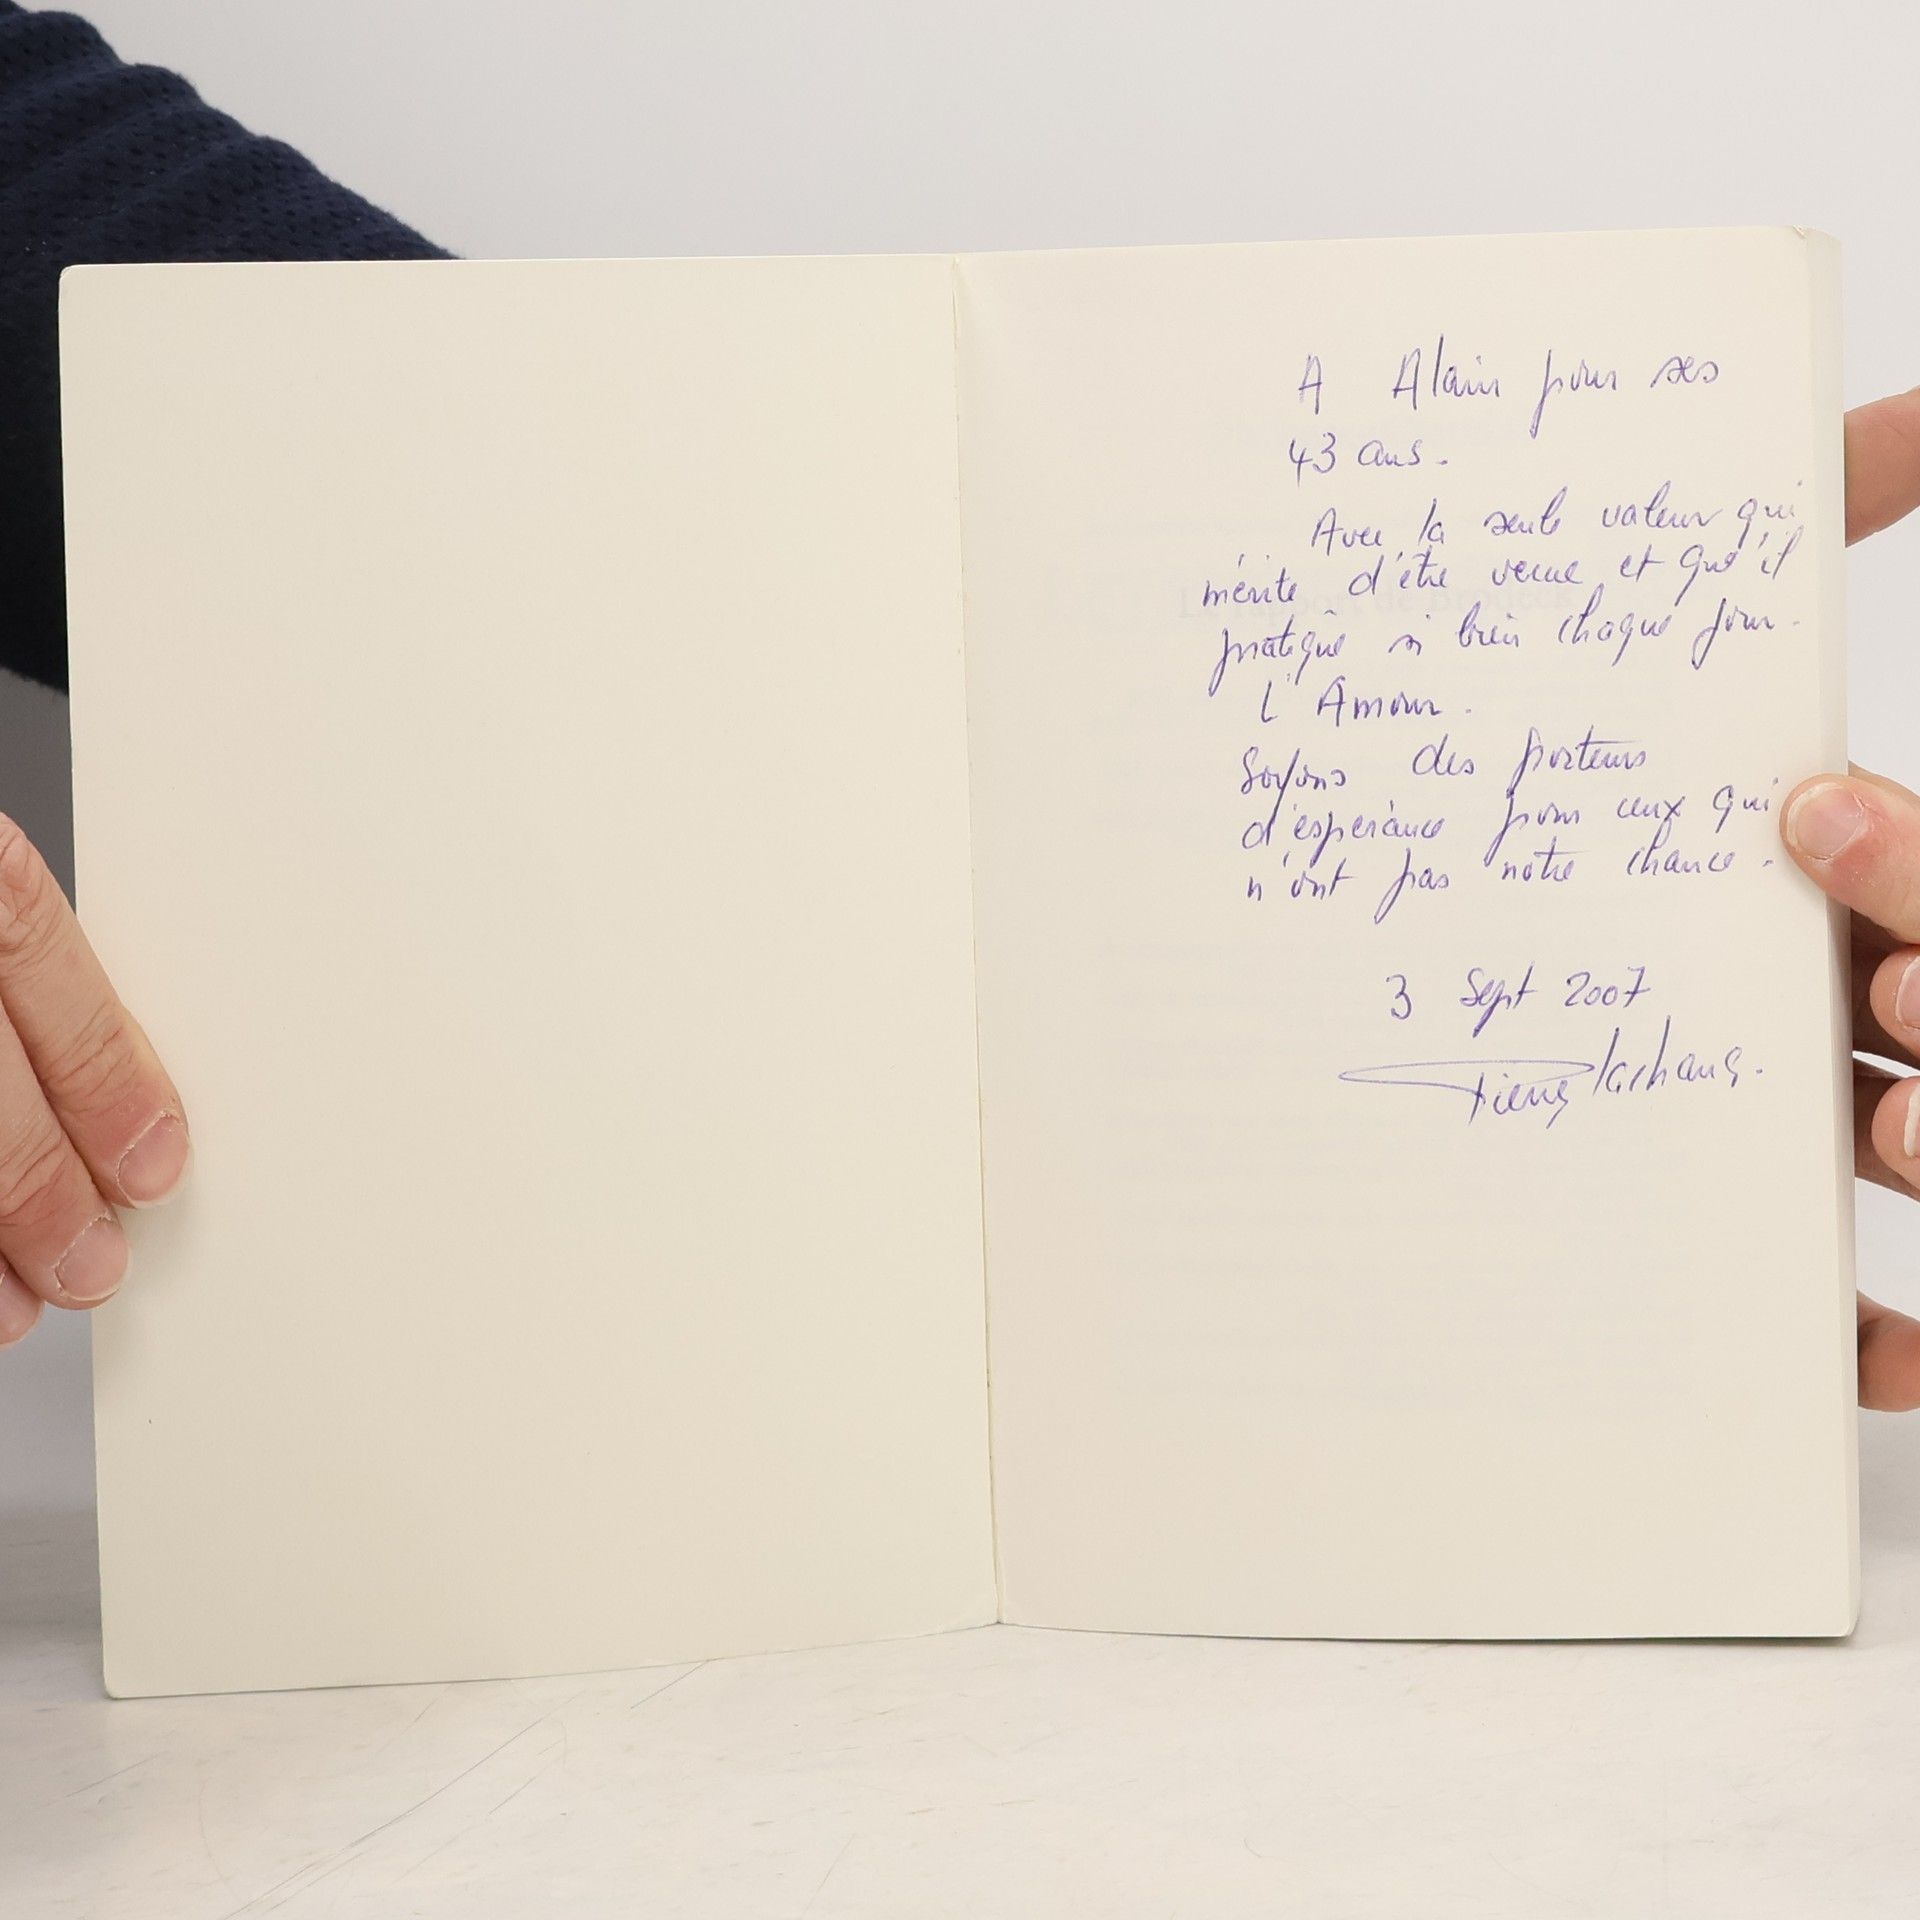 A Alain pour ses
43 ans.
Avec la seule valeur qui
mérite d'être vécue et qu'il
pratique si bien chaque jour.
L'Amour.
Soyons des porteurs
d'espérance pour ceux qui
n'ont pas notre chance.
3 Sept 2007
Pierre
Le rapport de Brodeck